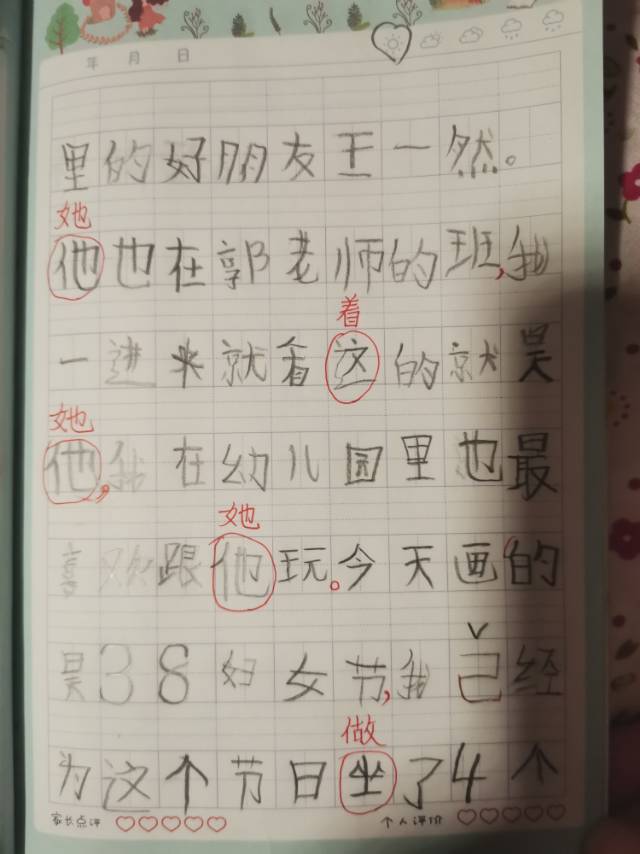 年 月 日
里的好朋友王一然。
她
他也在郭老师的班,我
着
一进来就看这的就昊
她
他,我在幼儿园里也最
她
喜欢跟他玩。今天画的
昊38妇女节,我己经
做
为这个节日坐了4个
家长点评 个人评价